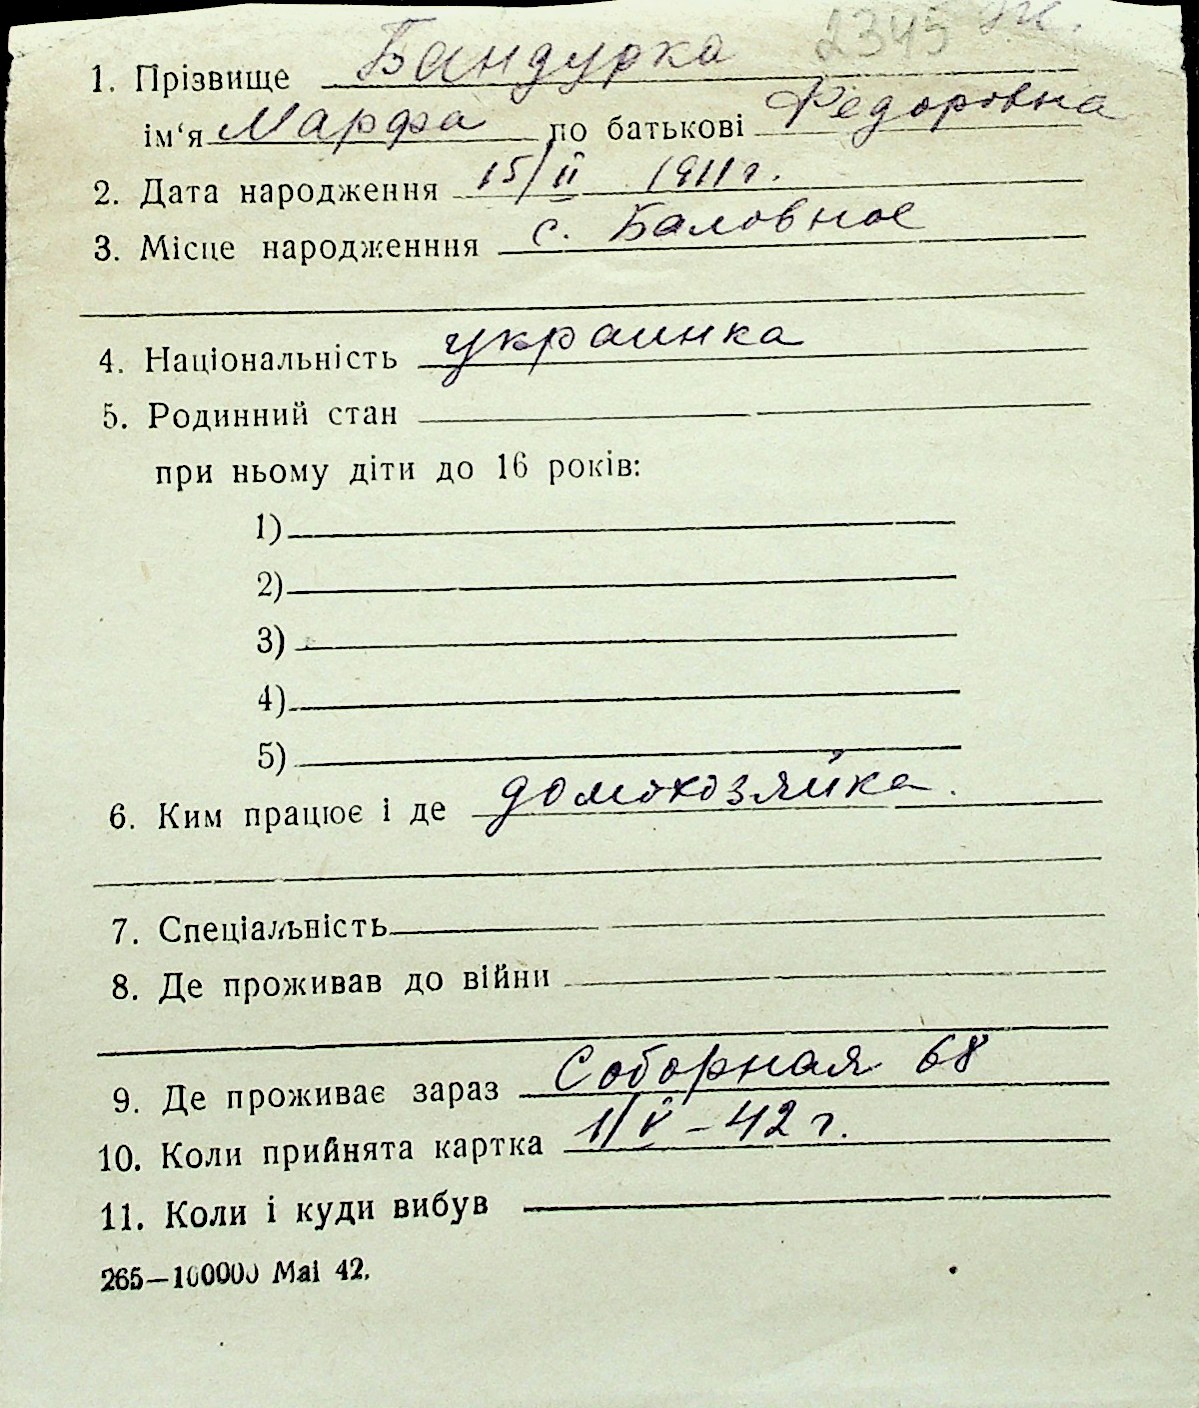 2345
1. Прізвище Бандурка
ім‘я Марфа по батькові Федоровна
2. Дата народження 15/II 1911 г.
3. Місце народженння с. Баловное
4. Національність украинка
5. Родинний стан
при ньому діти до 16 років:
1)
2)
3)
4)
5)
6. Ким працює і де домохозяйка.
7. Спеціальність
8. Де проживав до війни
9. Де проживає зараз Соборная 68
10. Коли прийнята картка 1/V – 42 г.
11. Коли і куди вибув
265—100000 Mai 42.